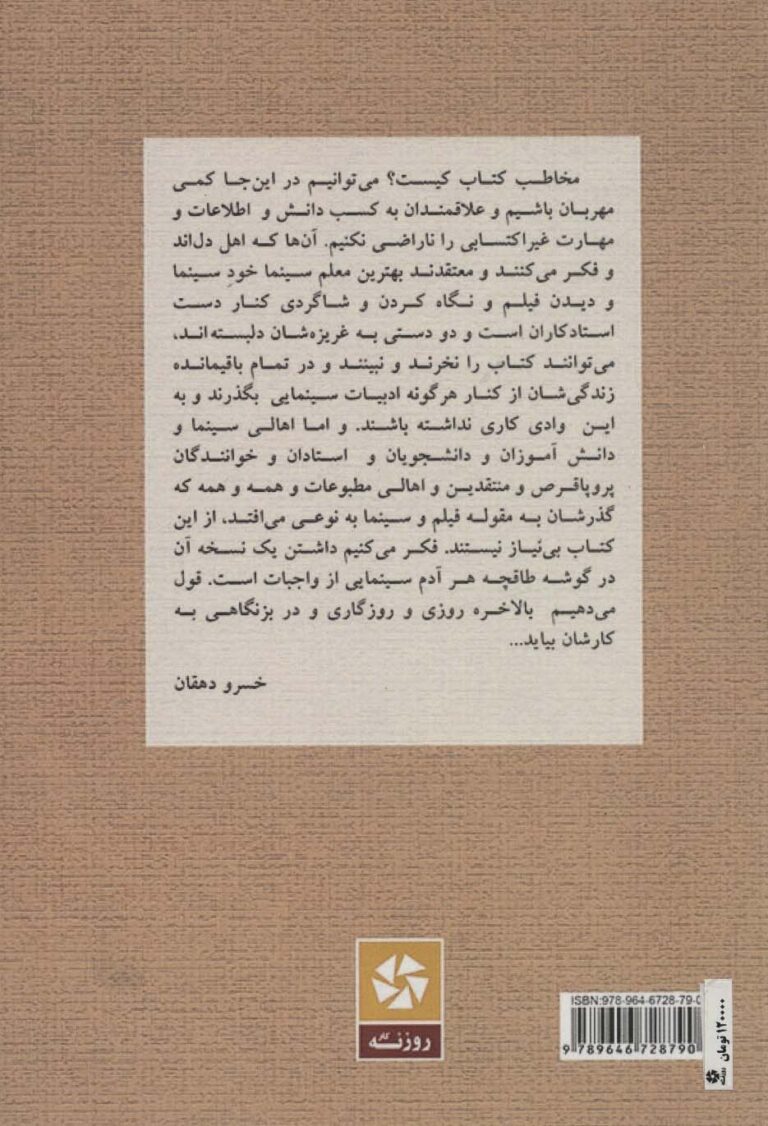 مخاطب کتاب کیست؟ می‌توانیم در این‌جا کمی
مهربان باشیم و علاقمندان به کسب دانش و اطلاعات و
مهارت غیراکتسابی را ناراضی نکنیم. آن‌ها که اهل دل‌اند
و فکر می‌کنند و معتقدند بهترین معلم سینما خودِ سینما
و دیدن فیلم و نگاه کردن و شاگردی کنار دست
استادکاران است و دو دستی به غریزه‌شان دلبسته‌اند،
می‌توانند کتاب را نخرند و نبینند و در تمام باقیمانده
زندگی‌شان از کنار هرگونه ادبیات سینمایی بگذرند و به
این وادی کاری نداشته باشند. و اما اهالی سینما و
دانش آموزان و دانشجویان و استادان و خوانندگان
پروپاقرص و منتقدین و اهالی مطبوعات و همه و همه که
گذرشان به مقوله فیلم و سینما به نوعی می‌افتد، از این
کتاب بی‌نیاز نیستند. فکر می‌کنیم داشتن یک نسخه آن
در گوشه طاقچه هر آدم سینمایی از واجبات است. قول
می‌دهیم بالاخره روزی و روزگاری و در بزنگاهی به
کارشان بیاید...
خسرو دهقان
روزنه کار
ISBN:978-964-6728-79-0
9 789646 728790
۱۲۰۰۰۰ تومان
روزنه